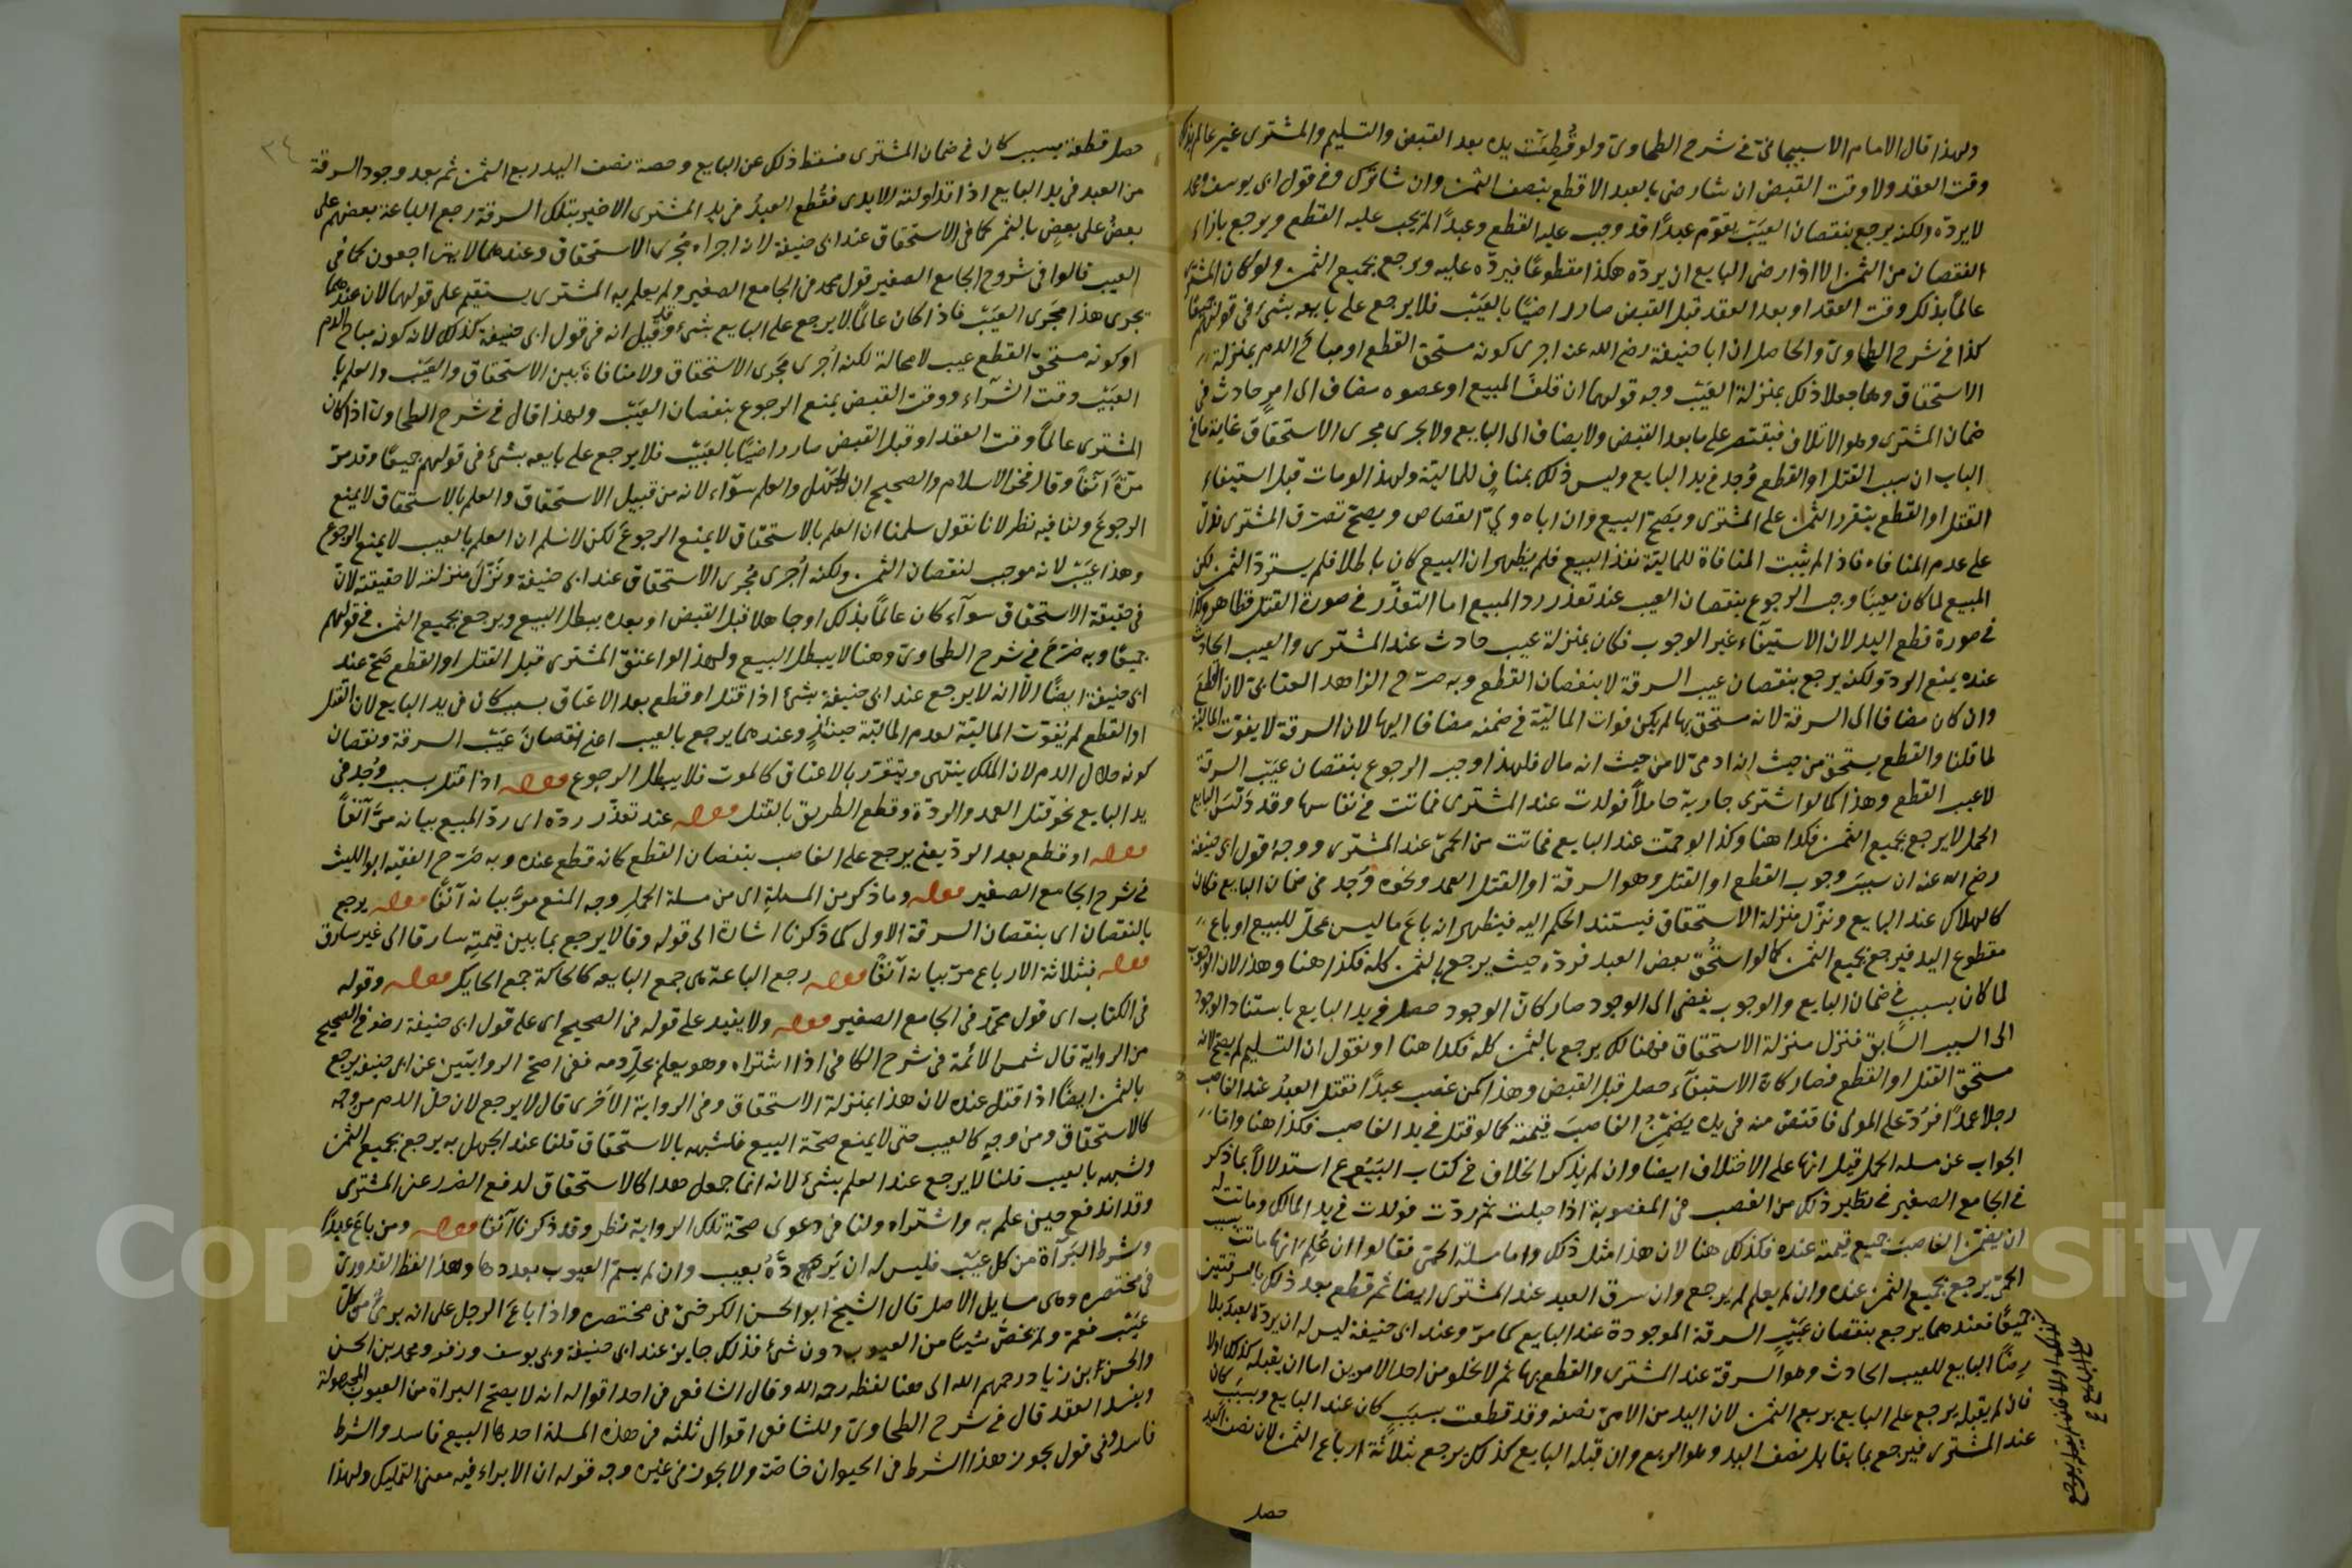 ولهذا قال الامام الاسبيجابي في شرح الطحاوي ولو قُطِعَت يده بعد القبض والتسليم والمشترى غير عالم بذلك
وقت العقد ولا وقت القبض ان شا رضى بالعبد الاقطع بنصف الثمن وان شا ترك وفي قول ابى يوسف ومحمد
لا يرده ولكنه يرجع بنقصان العيب يقوّم عبدًا قد وجب عليه القطع وعبدًا لم يجب عليه القطع ويرجع بازاء
النقصان من الثمن الا اذا رضى البايع ان يرده هكذا مقطوعًا فيرده عليه ويرجع بجميع الثمن ولو كان المشترى
عالمًا بذلك وقت العقد او بعد العقد قبل القبض صار راضيًا بالعيب فلا يرجع على بايعه بشئ في قولهم جميعًا
كذا في شرح الطحاوي والحاصل ان ابا حنيفة رضى الله عنه اجرى كونه مستحق القطع او مباح الدم بمنزلة
الاستحقاق وهما جعلا ذلك بمنزلة العيب وجه قولهما ان تلف المبيع او عضوه مضاف الى امر حادث في
ضمان المشترى وهو الاتلاف فيقتصر على ما بعد القبض ولا يضاف الى البايع ولا يجرى مجرى الاستحقاق غاية ما في
الباب ان سبب القتل او القطع وُجد في يد البايع وليس ذلك بمنافٍ للمالية ولهذا لو مات قبل استيفاء
القتل او القطع يتقرر الثمن على المشترى ويصح البيع وان اباه ولي القصاص ويصح تصرف المشترى فدل
على عدم المنافاة فاذا لم يثبت المنافاة للمالية نفذ البيع فلم يظهر ان البيع كان باطلا فلم يسترد الثمن لكن
المبيع لما كان معيبًا وجب الرجوع بنقصان العيب عند تعذر رد المبيع اما التعذر في صورة القتل فظاهر وكذا
في صورة قطع اليد لان الاستيفاء غير الوجوب فكان بمنزلة عيب حادث عند المشترى والعيب الحادث
عنده يمنع الرد ولكنه يرجع بنقصان عيب السرقة لا بنقصان القطع وبه صرّح الزاهد العتابى لان القطع
وان كان مضافا الى السرقة لانه مستحق بها لم يكن فوات المالية في ضمنه مضافا اليها لان السرقة لا يفوّت المالية
لما قلنا والقطع يستحق من حيث انه ادمى لا من حيث انه مال فلهذا وجب الرجوع بنقصان عيب السرقة
لا عيب القطع وهذا كما لو اشترى جارية حاملا فولدت عند المشترى فماتت في نفاسها وقد دلّس البايع
الحمل لا يرجع بجميع الثمن فكذا هنا وكذا لو حمّت عند البايع فماتت من الحمى عند المشترى ووجه قول ابى حنيفة
رضى الله عنه ان سبب وجوب القطع او القتل وهو السرقة او القتل العمد ونحوه وُجد في ضمان البايع فكان
كالهلاك عند البايع ونزل منزلة الاستحقاق فيستند الحكم اليه فيظهر انه باع ما ليس محلّ للبيع او باع
مقطوع اليد فيرجع بجميع الثمن كما لو استُحق بعض العبد فرده حيث يرجع بالثمن كله فكذا هنا وهذا لان الوجوب
لما كان بسبب في ضمان البايع والوجوب يفضى الى الوجود صار كان الوجود حصل في يد البايع باستناد الوجود
الى السبب السابق فنزل منزلة الاستحقاق فهنالك يرجع بالثمن كله فكذا هنا او نقول ان التسليم لم يصح لانه
مستحق القتل او القطع فصار كان الاستيفاء حصل قبل القبض وهذا كمن غصب عبدًا فقتل العبدُ عند الغاصب
رجلا عمدًا فردّ على المولى فاقتص منه في يده يضمن الغاصب قيمته كما لو قتل في يد الغاصب فكذا هنا واما
الجواب عن مسلة الحمل قيل انها على الاختلاف ايضا وان لم يذكر الخلاف في كتاب البيوع استدلالا بما ذكر
في الجامع الصغير في نظير ذلك من الغصب في المغصوبة اذا حبلت ثم ردت فولدت في يد المالك وماتت به
ان يضمن الغاصب جميع قيمته عنده فكذلك هنا لان هذا مثل ذلك واما مسلة الحمى فقالوا ان عُلِمَ انها ماتت بسبب
الحمى يرجع بجميع الثمن عنده وان لم يعلم لم يرجع وان سرق العبد عند المشترى ايضا ثم قطع بعد ذلك بالسرقتين
جميعًا فعندهما يرجع بنقصان عيب السرقة الموجودة عند البايع كما مر وعند ابى حنيفة ليس له ان يرد العبد بلا
رضا البايع للعيب الحادث وهو السرقة عند المشترى والقطع بها ثم لا يخلو من احد الامرين اما ان يقبله كذلك او لا
فان لم يقبله يرجع على البايع بربع الثمن لان اليد من الادمى نصفه وقد قطعت بسبب كان عند البايع وبسبب كان
عند المشترى فيرجع بما يقابل نصف اليد وهو الربع وان قبله البايع كذلك يرجع بثلاثة ارباع الثمن لان نصف اليد
حصل
٣٤
حصل قطعه بسبب كان في ضمان المشترى فسقط ذلك عن البايع وحصة نصف اليد ربع الثمن ثم بعد وجود السرقة
من العبد في يد البايع اذا تداولته الايدى فقُطع العبدُ في يد المشترى الاخير بتلك السرقة رجع الباعة بعضهم على
بعض على بعض بالثمن كما في الاستحقاق عند ابى حنيفة لانه اجراه مجرى الاستحقاق وعندهما لا يتراجعون كما في
العيب قالوا في شروح الجامع الصغير قول محمد في الجامع الصغير ولم يعلم به المشترى يستقيم على قولهما لان عندهما
يجرى هذا مجرى العيب فاذا كان عالمًا لا يرجع على البايع بشئ وقد قيل انه في قول ابى حنيفة كذلك لانه كونه مباح الدم
او كونه مستحق القطع عيب لا محالة لكنه اُجرى مجرى الاستحقاق ولا منافاة بين الاستحقاق والعيب والعلم با
العيب وقت الشراء ووقت القبض يمنع الرجوع بنقصان العيب ولهذا قال في شرح الطحاوي اذا كان
المشترى عالمًا وقت العقد او قبل القبض صار راضيًا بالعيب فلا يرجع على بايعه بشئ في قولهم جميعًا وقد مر
مرّة آنفا وقال فخر الاسلام والصحيح ان الجهل والعلم سواء لانه من قبيل الاستحقاق والعلم بالاستحقاق لا يمنع
الرجوع ولنا فيه نظر لانا نقول سلمنا ان العلم بالاستحقاق لا يمنع الرجوع لكن لا نسلم ان العلم بالعيب لا يمنع الرجوع
وهذا عيب لانه موجب لنقصان الثمن ولكنه اُجرى مجرى الاستحقاق عند ابى حنيفة ونزل منزلته لا حقيقة لان
في حقيقة الاستحقاق سواء كان عالمًا بذلك او جاهلا قبل القبض او بعده يبطل البيع ويرجع بجميع الثمن في قولهم
جميعًا وبه صرّح في شرح الطحاوي وهنا لا يبطل البيع ولهذا لو اعتق المشترى قبل القتل او القطع صح عند
ابى حنيفة ايضًا الا انه لا يرجع عند ابى حنيفة بشئ اذا قتل او قطع بعد الاعتاق بسبب كان في يد البايع لان القتل
او القطع لم يفوّت المالية لعدم المالية حينئذٍ وعندهما يرجع بالعيب اعنى نقصان عيب السرقة ونقصان
كونه حلال الدم لان الملك ينتهى ويتقرّر بالاعتاق كالموت فلا يبطل الرجوع قوله اذا قتل بسبب وُجد في
يد البايع نحو قتل العمد والردة وقطع الطريق بالقتل قوله عند تعذّر ردّه اى ردّ المبيع بيانه مرّ آنفاً
قوله او قطع بعد الرد يعنى يرجع على الغاصب بنقصان القطع كانه قطع عنده وبه صرّح الفقيه ابو الليث
في شرح الجامع الصغير قوله وما ذكر من المسلةِ اى من مسلة الحمل وجه المنع مرّ بيانه آنفًا قوله يرجع
بالنقصان اى بنقصان السرقة الاول كما ذكرنا اشارة الى قوله وقالا يرجع بما بين قيمته سارقا الى غير سارق
قوله بثلاثة الارباع مرّ بيانه آنفًا قوله رجع الباعة هى جمع البايع كالحاكة جمع الحايك قوله وقوله
في الكتاب اى قول محمّد في الجامع الصغير قوله ولا يفيد على قوله في الصحيح اى على قول ابى حنيفة رضه في الصحيح
من الرواية قال شمس الائمة في شرح الكافى اذا اشتراه وهو يعلم بحلّ دمه ففى اصح الروايتين عن ابى حنيفة يرجع
بالثمن ايضًا اذا قتل عنده لان هذا بمنزلة الاستحقاق وفى الرواية الاخرى قال لا يرجع لان حل الدم من وجه
كالاستحقاق ومن وجهٍ كالعيب حتى لا يمنع صحّة البيع فلشبهه بالاستحقاق قلنا عند الجهل به يرجع بجميع الثمن
ولشبهه بالعيب قلنا لا يرجع عند العلم بشئ لانه انما جعل هذا كالاستحقاق لدفع الضرر عن المشترى
وقد اندفع حين علم به واشتراه ولنا في دعوى صحّة تلك الرواية نظر وقد ذكرنا آنفا قوله ومن باع عبدًا
وشرط البراءة من كل عيب فليس له ان يرده بعيب وان لم يسمّ العيوب بعددها وهذا لفظ القدورى
في مختصره وهى مسايل الاصل قال الشيخ ابو الحسن الكرخىّ في مختصره واذا باع الرجل على انه برئ من كلّ
عيب فعمّ ولم يخصّ شيئا من العيوب دون شئ فذلك جايز عند ابى حنيفة وابى يوسف وزفر ومحمد بن الحسن
والحسن ابن زياد رحمهم الله الى هنا لفظه رحمه الله وقال الشافعى في احد اقواله انه لا يصحّ البراءة من العيوب المجهولة
ويفسد العقد قال في شرح الطحاوى وللشافعى اقوال ثلثه في هذه المسلة احدها البيع فاسد والشرط
فاسد وفى قول يجوز هذا الشرط في الحيوان خاصّة ولا يجوز في غيره وجه قوله ان الابراء فيه معنى التمليك ولهذا